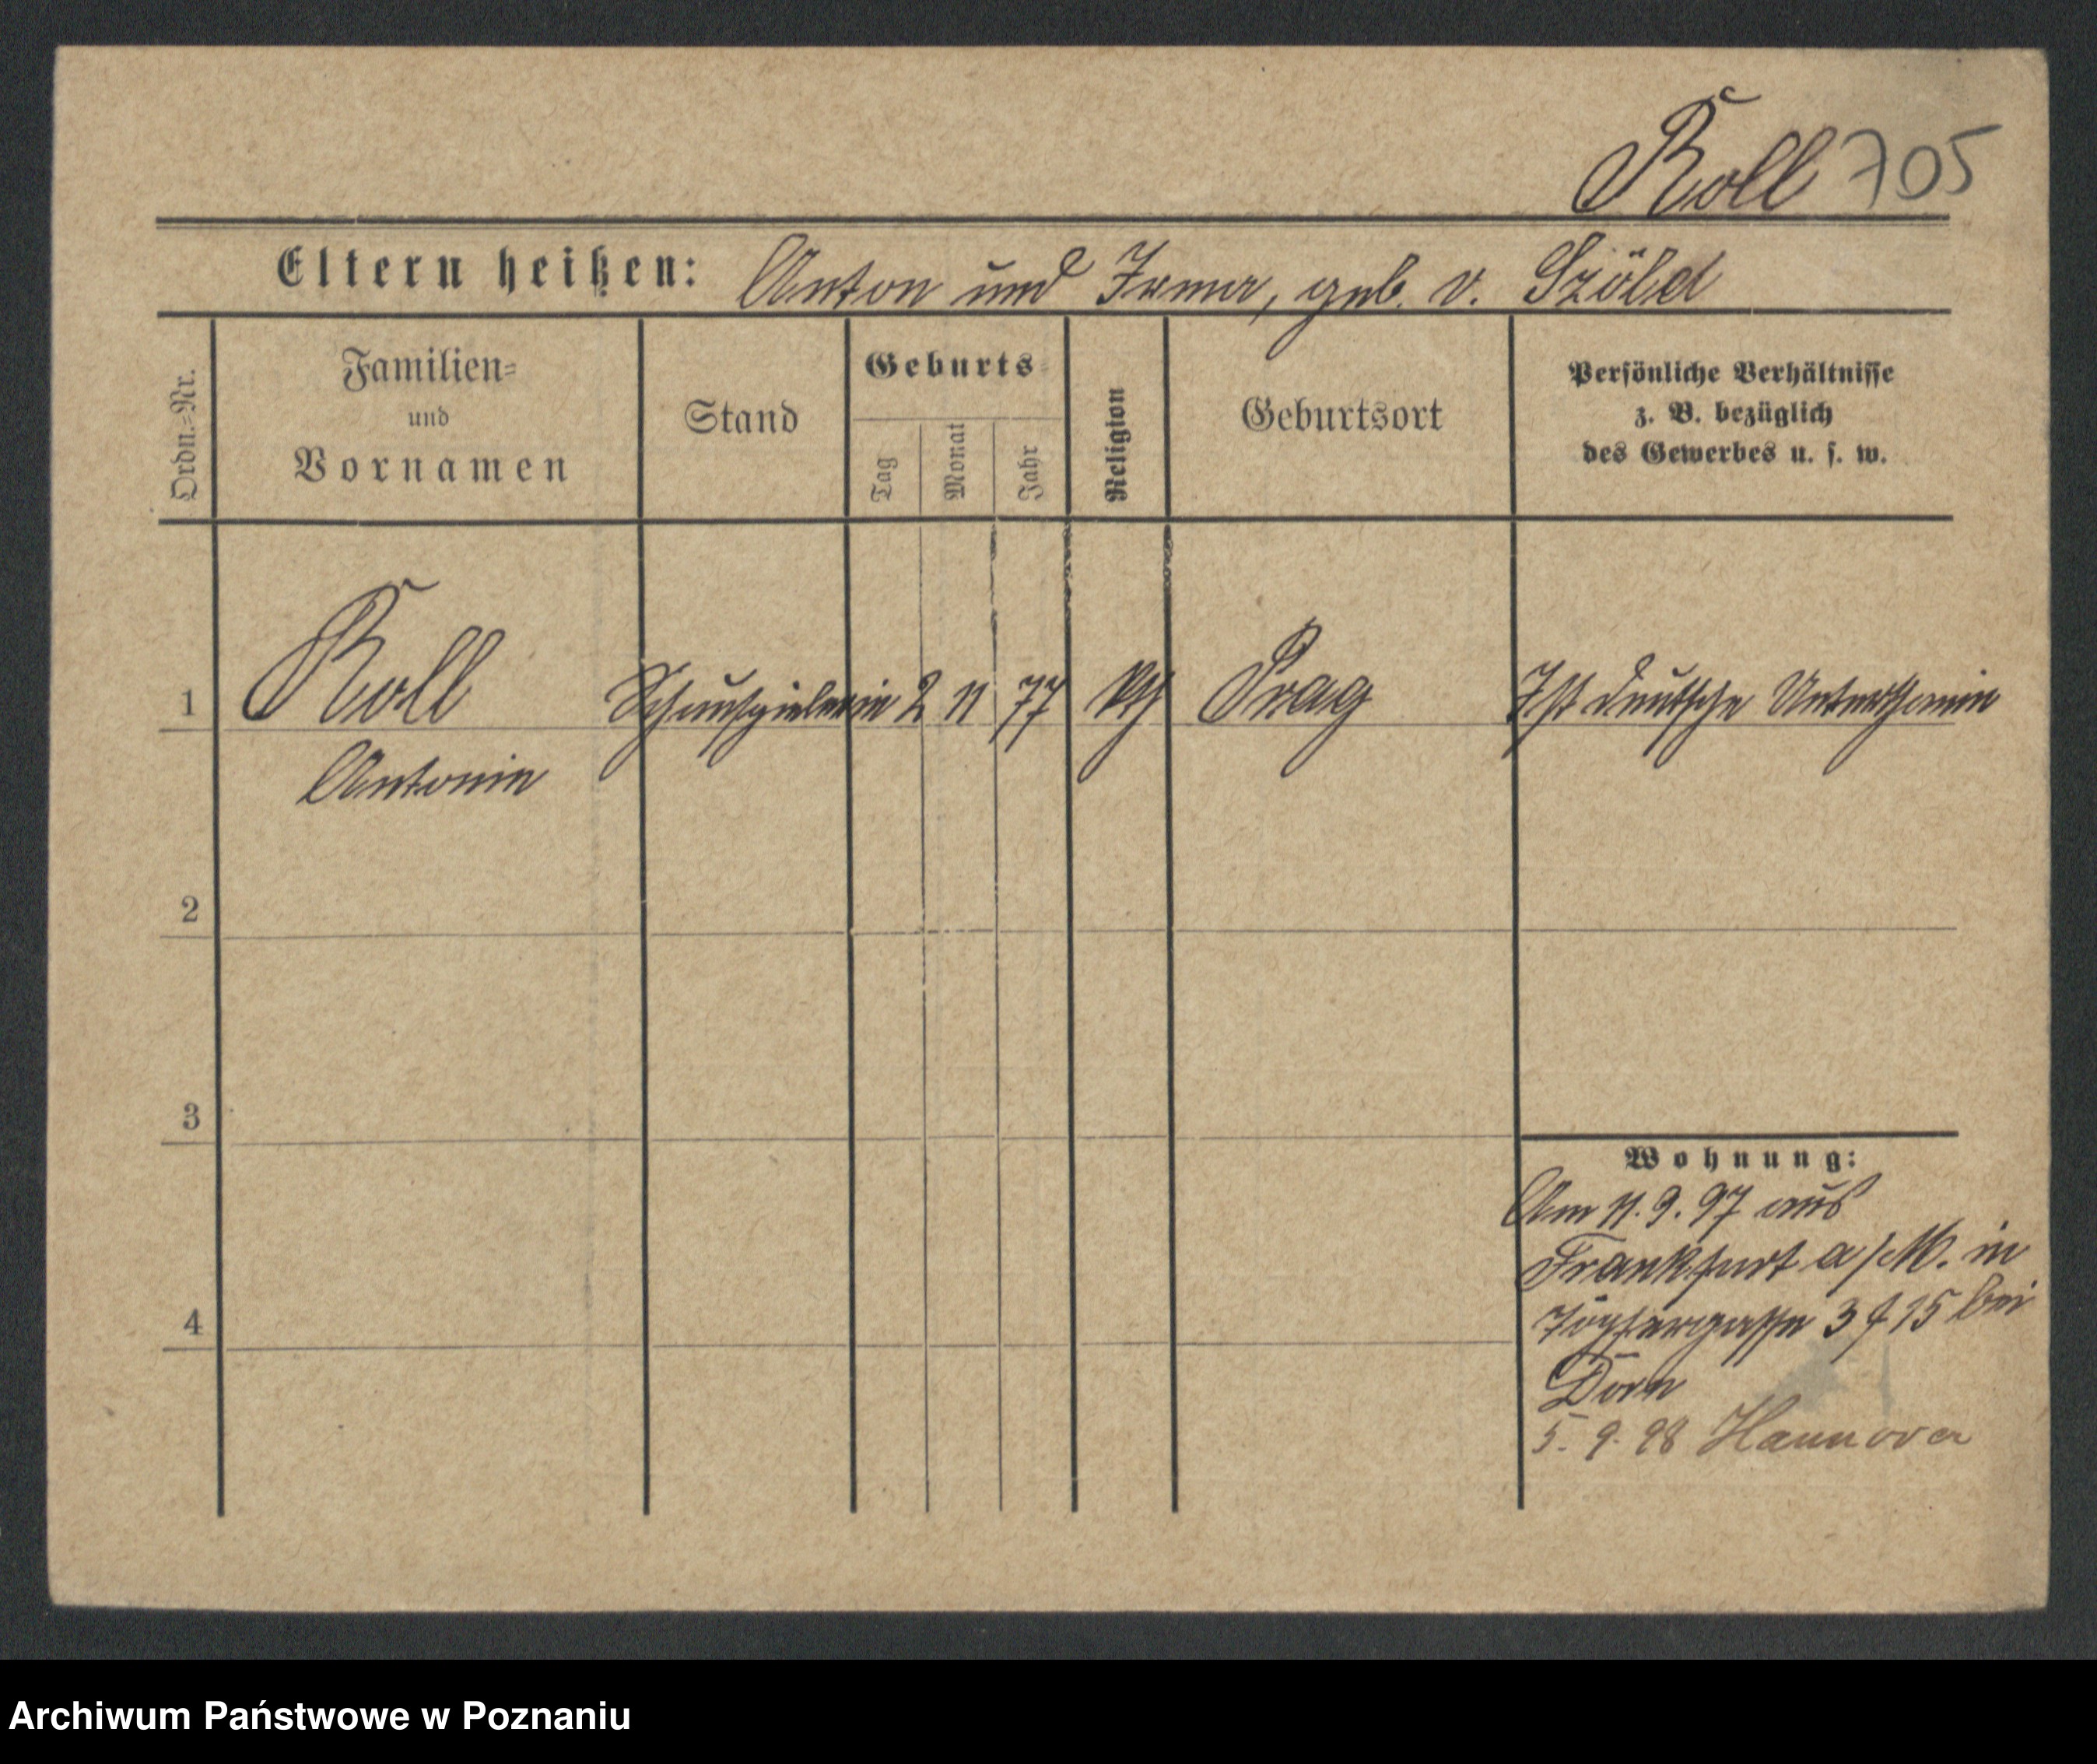 Roll 705
Eltern heißen: Anton und Irma, geb. v. Szöld
Ordn.-Nr.
Familien-
und
Vornamen
Stand
Geburts-
Tag
Monat
Jahr
Religion
Geburtsort
Persönliche Verhältnisse
z. B. bezüglich
des Gewerbes u. s. w.
1 Roll Schauspielerin 2 11 77 kth Prag Ist deutsche Unterthanin
Antonie
2
3
Wohnung:
Am 11. 9. 97 aus
Frankfurt a/M. in
4 Töpfergasse 3 15 bei
Dorn
5. 9. 98 Hannover
Archiwum Państwowe w Poznaniu